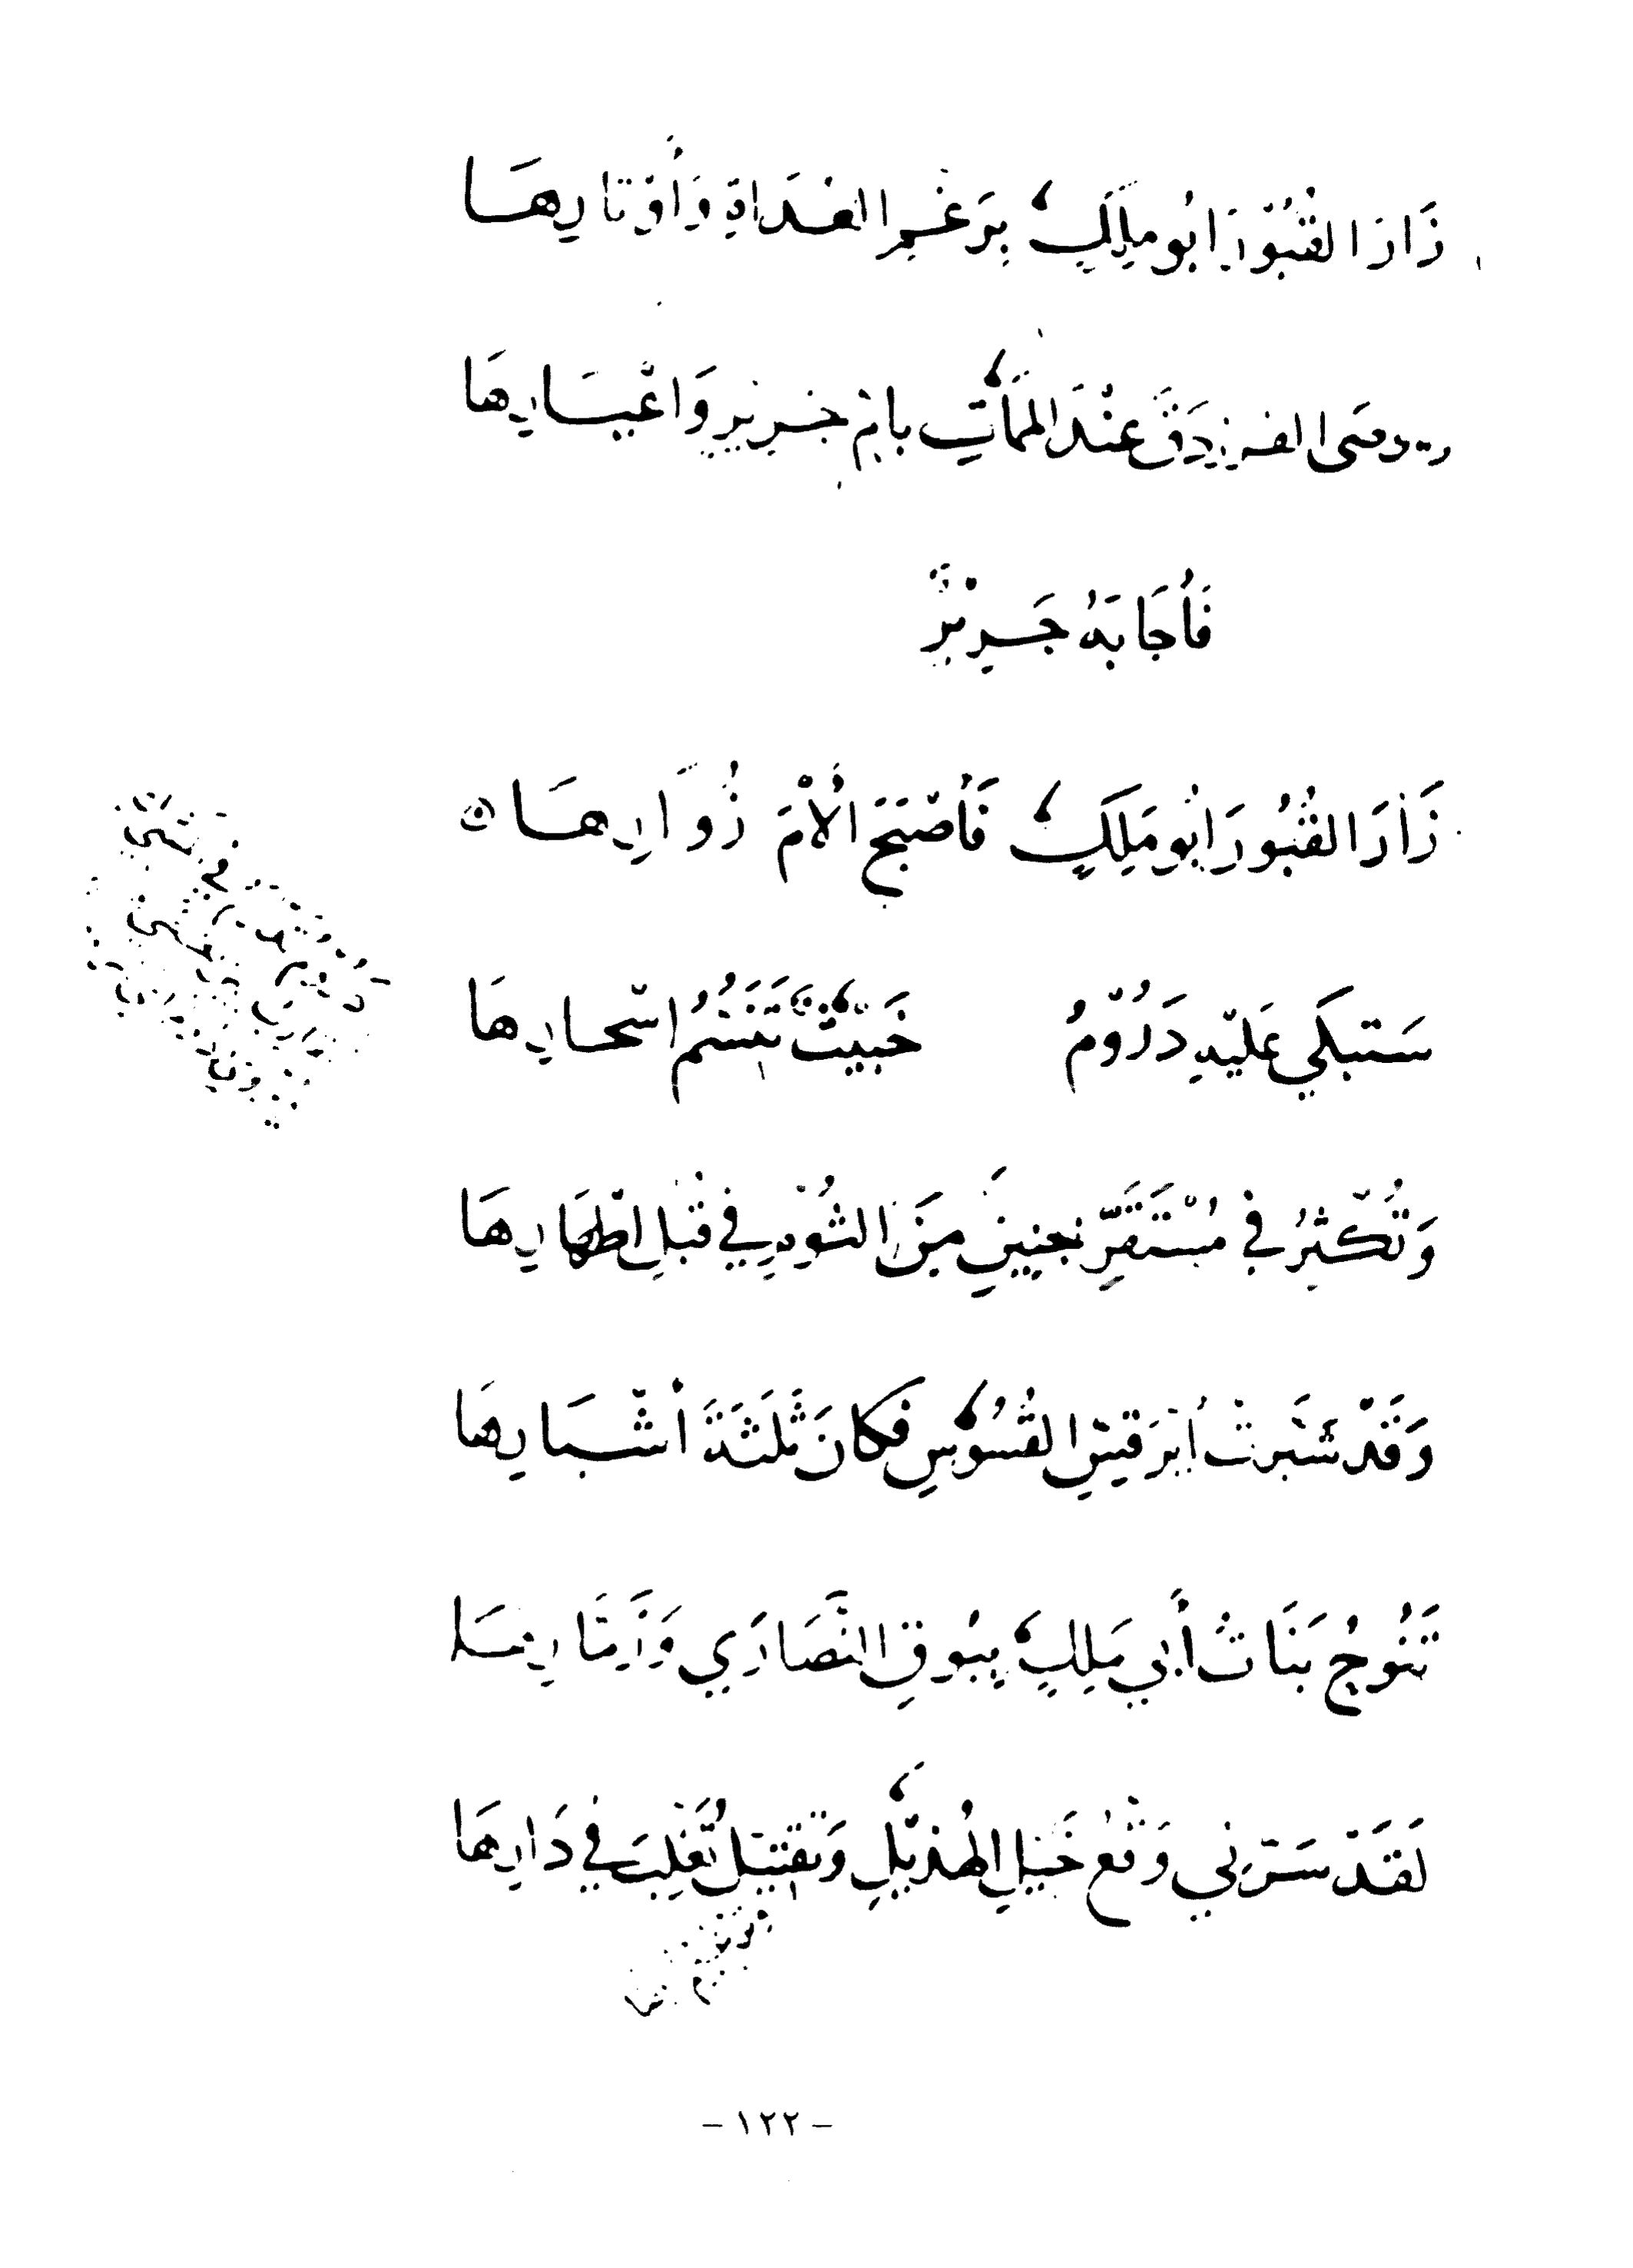 زَارَ القُبُورَ ابُو مٰلِكٍ بِرَغمِ العُدَاةِ وَأَوْتَارِهَا
الفرزدَقَ عِنْدَ المَمَاتِ بام جَرِيرٍ وَاعْيَارِهَا
فَأَجَابَهُ جَرِيرٌ
زَارَ القُبُورَ ابُو مٰلِكٍ فَأَصْبَحَ الأَمَ زُوَّارِهَا
سَتَبكي عَلَيْهِ دَرُوْمُ خَبيثٌ تَنَسُّمُ اسْحارِهَا
وَتُكْثِرُ في مُسْتَقَرِّ جنِينِ مِنَ الثُومِ في قَبْلِ اطْهَارِهَا
وَقَدْ شَبَرَتْ أيرَ قَيسِ القُسُوسِ فَكانَ ثَلٰثَةَ أَشْبَارِهَا
تَنُوحُ بَنَاتُ أَبي مٰلِكٍ بِبُوقِ النَّصَارَي وَزمَّارِهَا
لَقَدْ سَرَّني وَقْعُ خَيلِ الهُذَيْلِ وَتَقتيلُ تَغْلِبَ في دَارِهَا
- ١٢٢ -